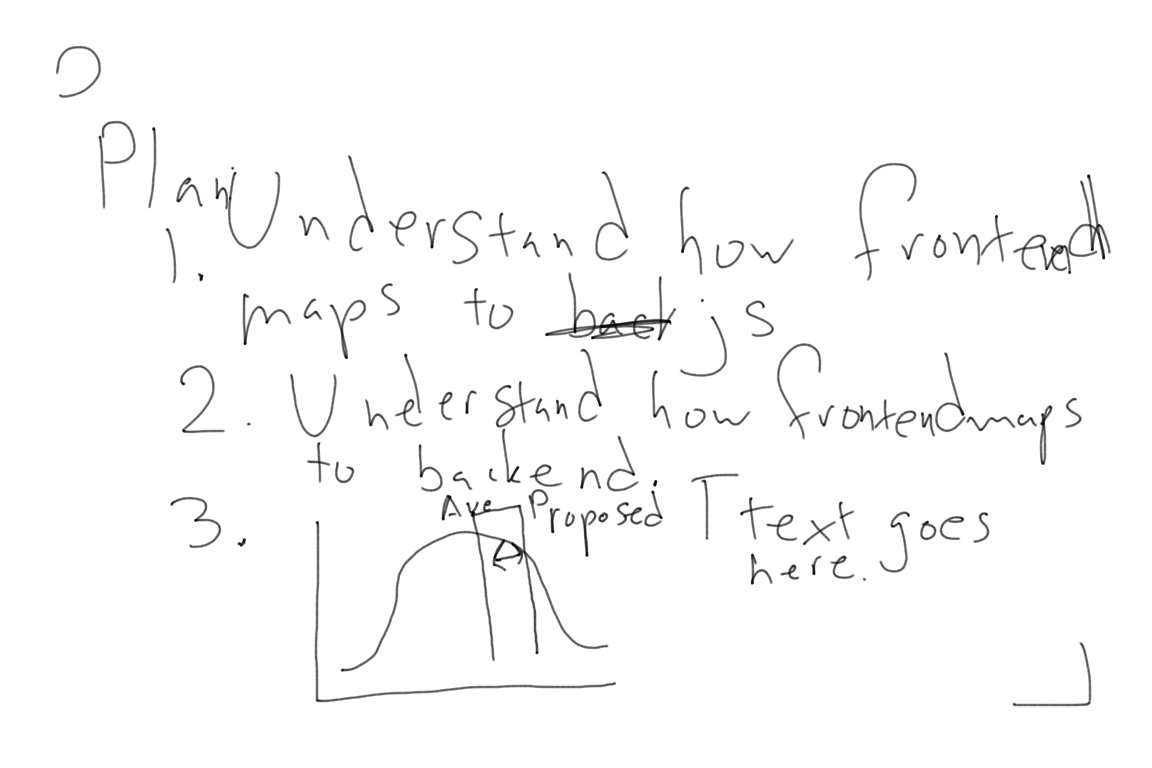 Plan
1. Understand how frontend
maps to back js
2. Understand how frontend maps
to backend.
3.
Ave Proposed
Δ
T text goes
here.